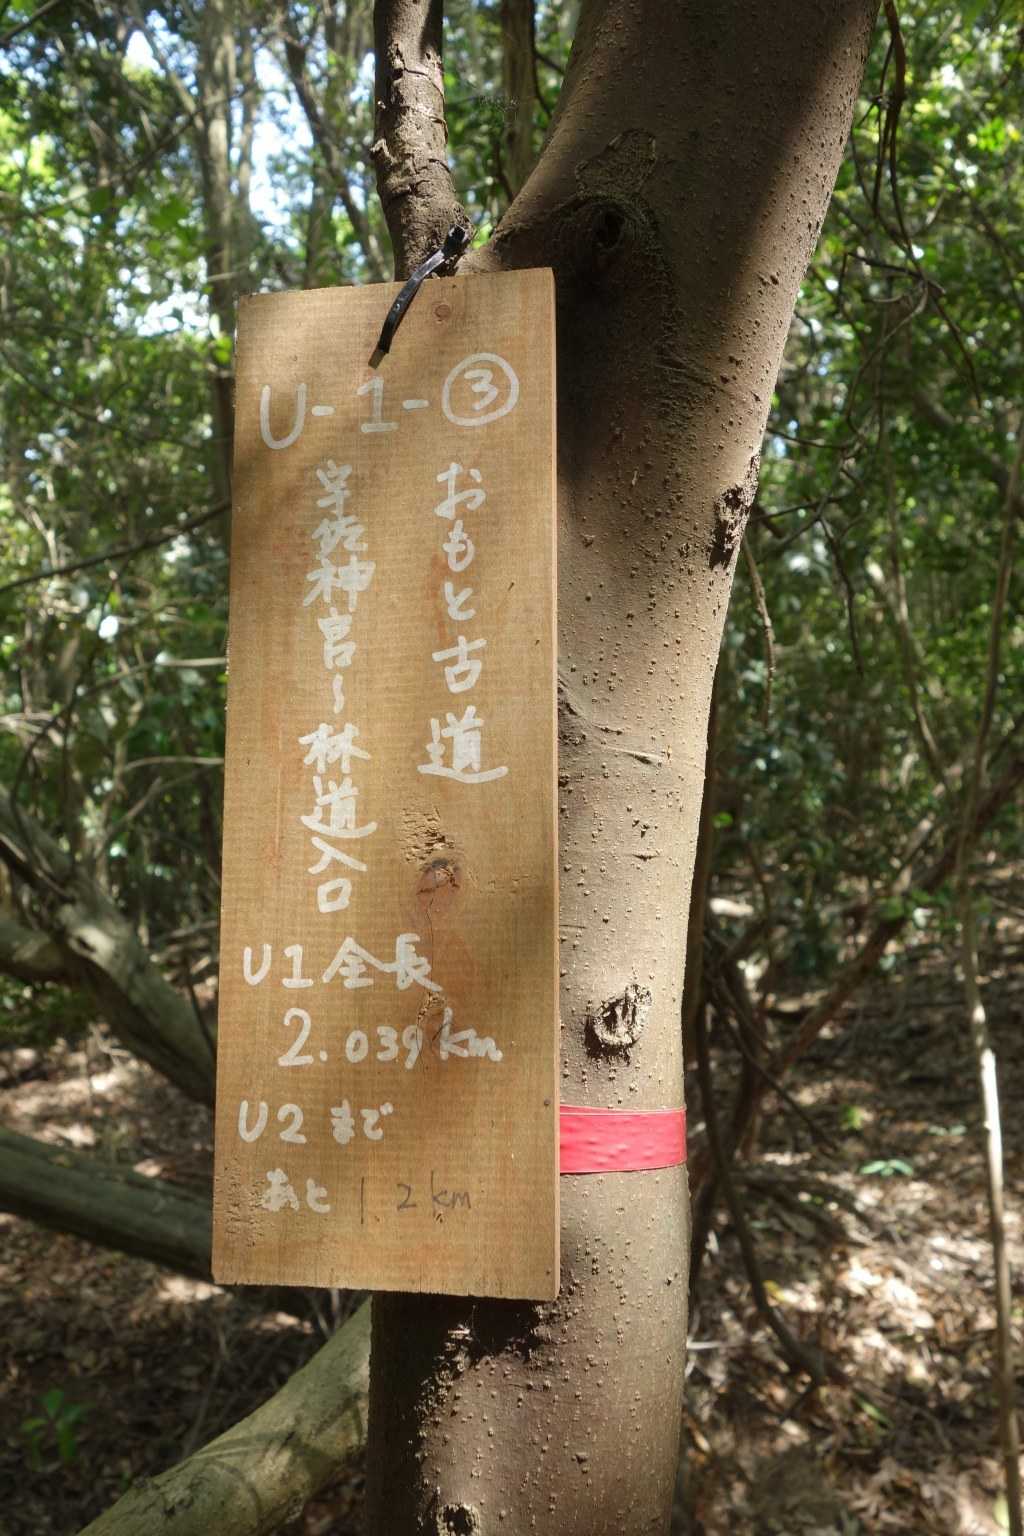 U-1-③
おもと古道
宇佐神宮～林道入口
U1全長
2.039km
U2まで
あと 1.2km